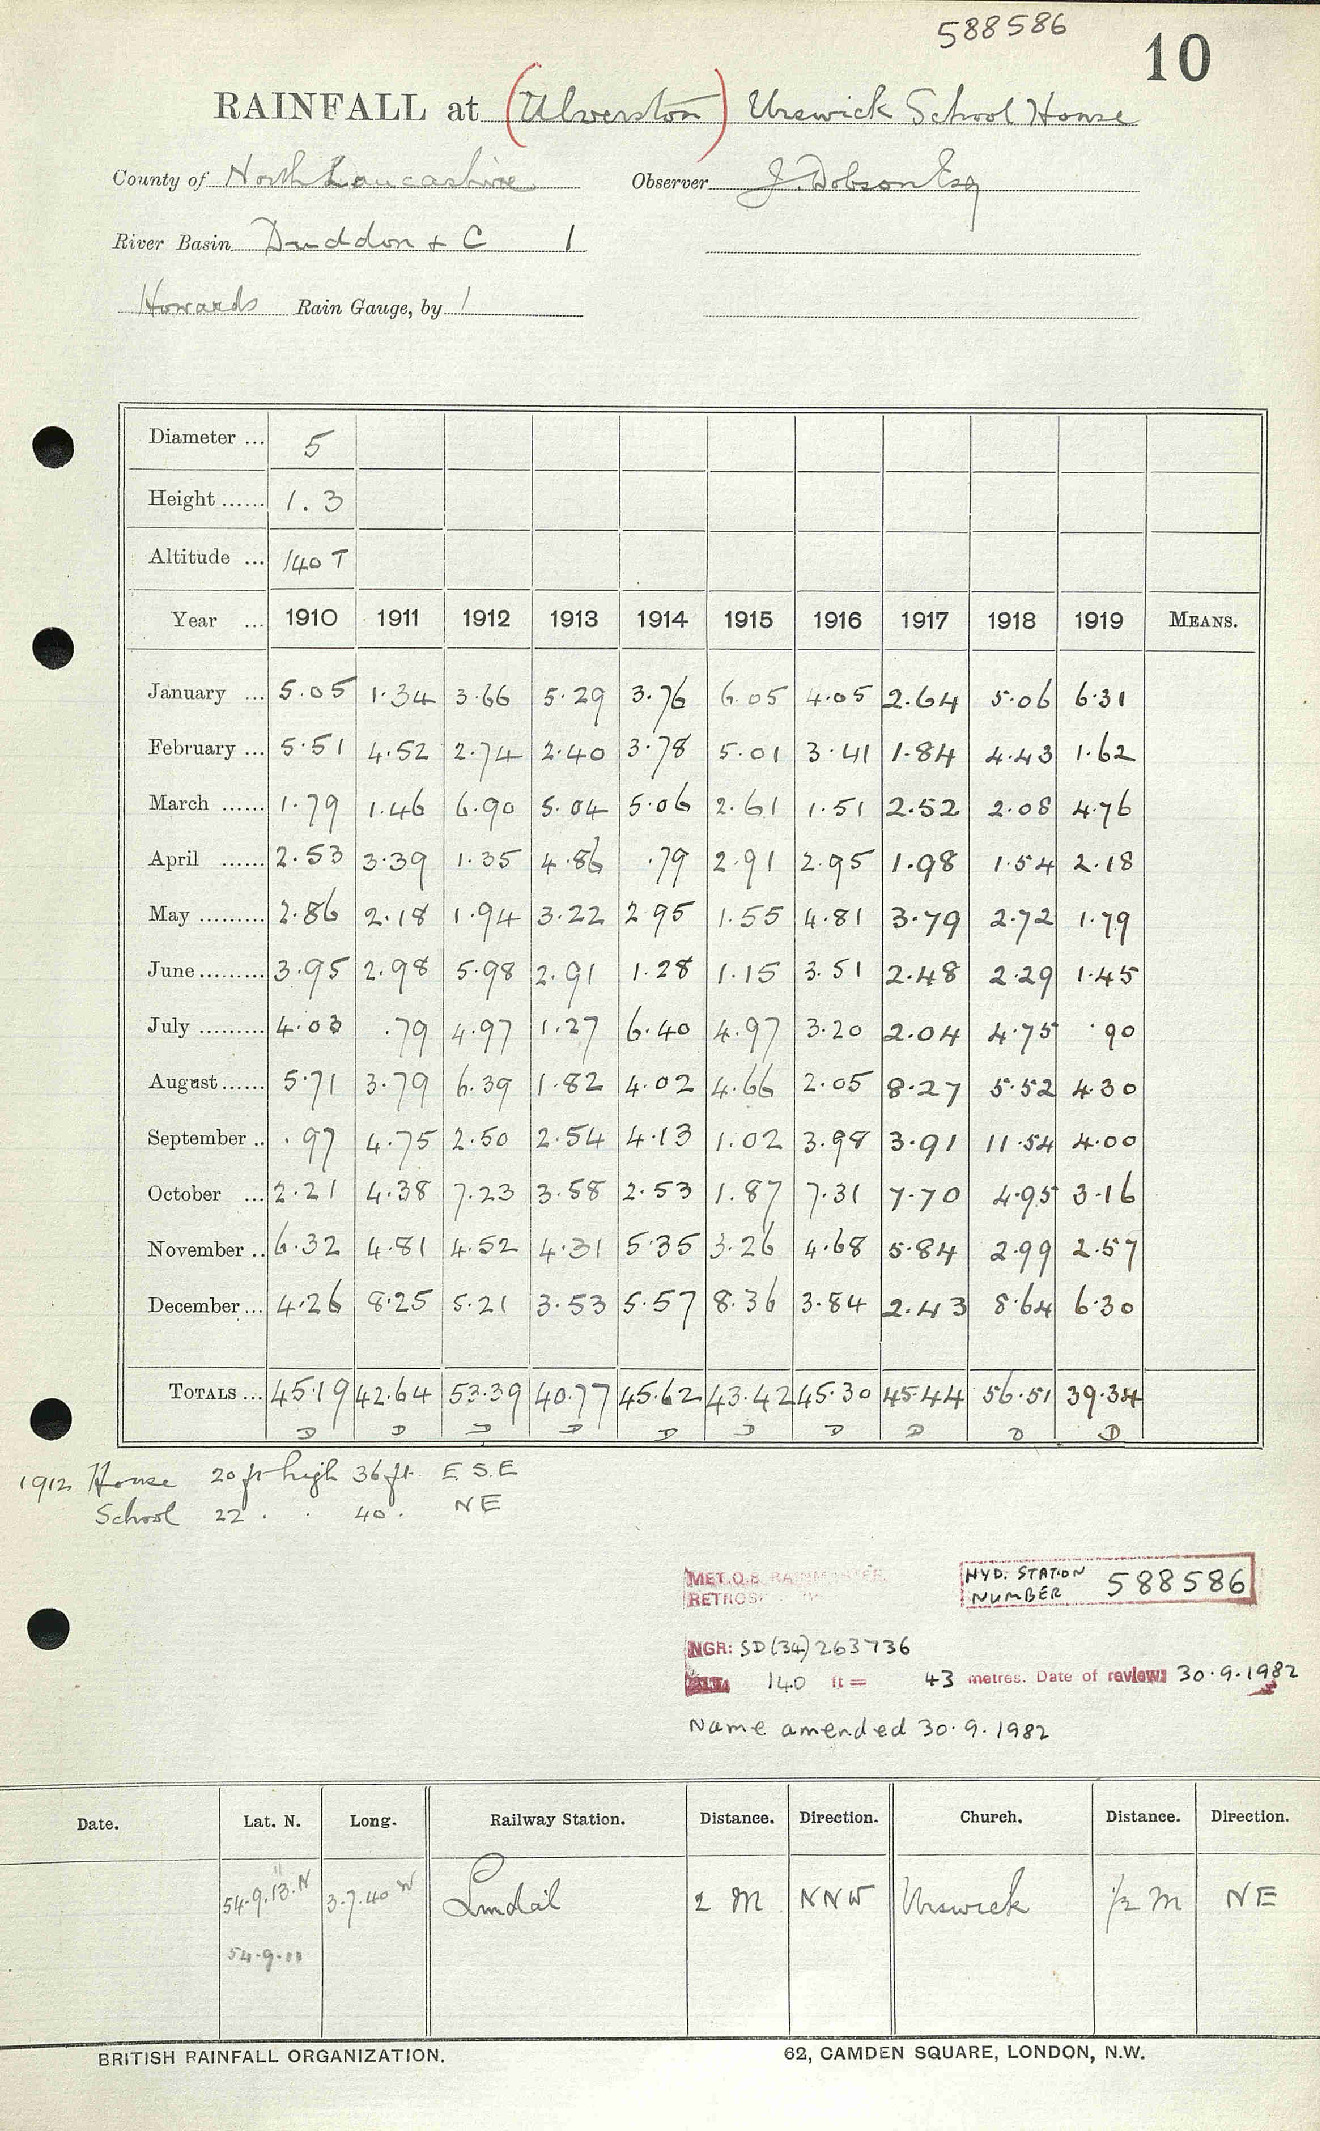 588586
10
RAINFALL at (Ulverston) Urswick School House
County of North Lancashire Observer J. Dobson Esq
River Basin Duddon + C 1
Howards Rain Gauge, by 1
Diameter ... 5
Height ...... 1.3
Altitude ... 140 T
Year ... 1910 1911 1912 1913 1914 1915 1916 1917 1918 1919 MEANS.
January ... 5.05 1.34 3.66 5.29 3.76 6.05 4.05 2.64 5.06 6.31
February ... 5.51 4.52 2.74 2.40 3.78 5.01 3.41 1.84 4.43 1.62
March ...... 1.79 1.46 6.90 5.04 5.06 2.61 1.51 2.52 2.08 4.76
April ...... 2.53 3.39 1.35 4.86 .79 2.91 2.95 1.98 1.54 2.18
May ......... 2.86 2.18 1.94 3.22 2.95 1.55 4.81 3.79 2.72 1.79
June ......... 3.95 2.98 5.98 2.91 1.28 1.15 3.51 2.48 2.29 1.45
July ......... 4.03 .79 4.97 1.27 6.40 4.97 3.20 2.04 4.75 .90
August ...... 5.71 3.79 6.39 1.82 4.02 4.66 2.05 8.27 5.52 4.30
September .. .97 4.75 2.50 2.54 4.13 1.02 3.98 3.91 11.54 4.00
October ... 2.21 4.38 7.23 3.58 2.53 1.87 7.31 7.70 4.95 3.16
November .. 6.32 4.81 4.52 4.31 5.35 3.26 4.68 5.84 2.99 2.57
December ... 4.26 8.25 5.21 3.53 5.57 8.36 3.84 2.43 8.64 6.30
TOTALS ... 45.19 42.64 53.39 40.77 45.62 43.42 45.30 45.44 56.51 39.34
D D D D D D D D D D
1912 House 20 ft high 36 ft. E.S.E
School 22 . . 40 . NE
MET.O.8 RAINMASTER
HYD. STATION
NUMBER 588586
NGR: SD (34) 263736
140 ft = 43 metres. Date of review: 30.9.1982
Name amended 30.9.1982
Date. Lat. N. Long. Railway Station. Distance. Direction. Church. Distance. Direction.
54.9.13.N 3.7.40 W Lindal 2 M NNW Urswick 1/2 M NE
54.9.11
BRITISH RAINFALL ORGANIZATION. 62, CAMDEN SQUARE, LONDON, N.W.